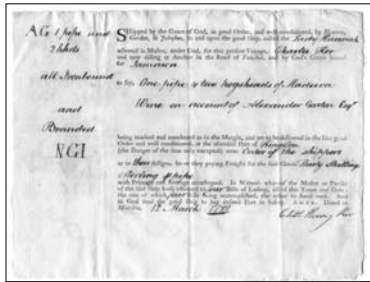 AG 1 pipe and
2 hhds
all Ironbound
and
Branded
NGI
SHipped by the Grace of God, in good Order, and well conditioned, by Newton,
Gordon, & Johnston, in and upon the good Ship, called the Lively Hannah
whereof is Master, under God, for this present Voyage, Charles Kerr
and now riding at Anchor in the Road of Funchal, and by God's Grace bound
for Jamaica
to say, One pipe & two hogsheads of Madeira
Wine on account of Alexander Esqr
being marked and numbered as in the Margin, and are to be delivered in the like good
Order and well conditioned, at the aforesaid Port of Kingston
(the Danger of the Seas only excepted) unto Order of the shippers
or to their Assigns, he or they paying Freight for the said Goods Forty Shillings
Sterling p pipe
with Primage and Average accustomed. In Witness whereof the Master or Purser
of the said Ship hath affirmed to four Bills of Lading, all of this Tenor and Date;
the one of which four Bills being accomplished, the other to stand void. And
so God send the good Ship to her desired Port in Safety. AMEN. Dated in
Madeira, 12 March